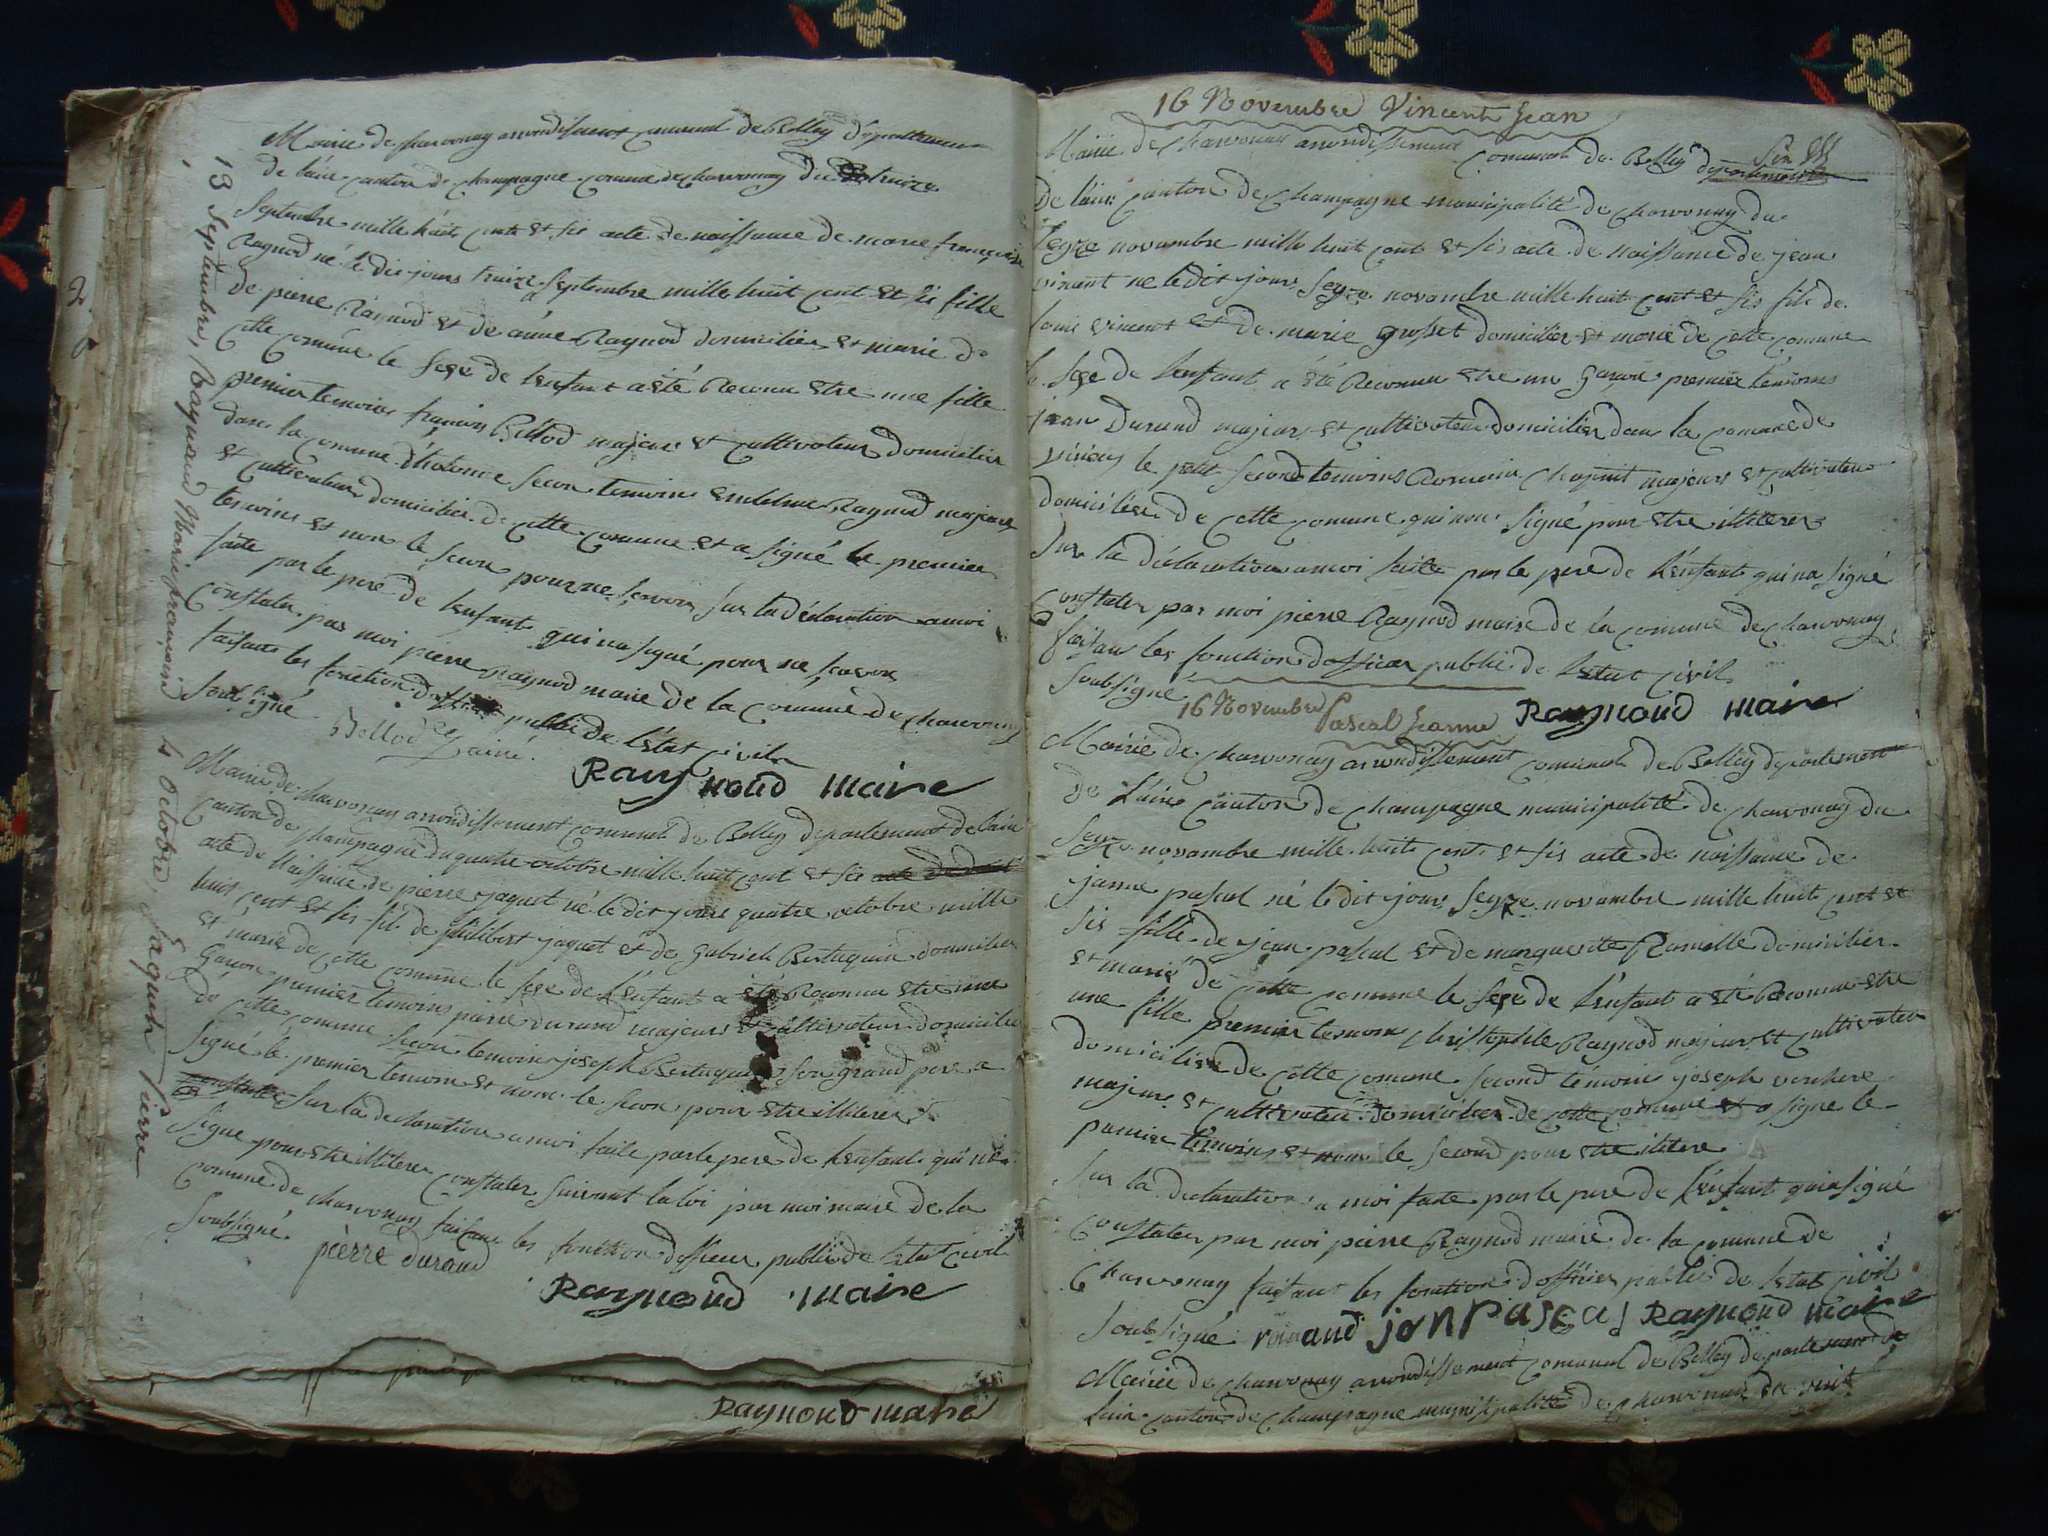 Mairie de charvonay arrondissement comunal de Belley departemen
de l'ain canton de champagne comune de charvonay du treize
Septembre mille huit cent et sis acte de naissance de marie françoise
Raynod né le dit jours treize Septembre mille huit cent et sis fille
de pierre Raynod et de anne Raynod domicilier et marie de
cette comune le sexe de l'enfant a été Reconu etre une fille
premier temoins françois Bellod majeur et cultivateur domicilier
dans la comune d'holonne secon temoin Raynod majeur
et cultivateur domicilier de cette comune et a signé le premier
temoins et non le secon pour ne savoir sur la déclaration a moi
faite par le pere de l'enfant qui na signé pour ne savoir
constater par moi pierre Raynod maire de la comune de charvonay
faisant les fonction d'officier public de l'état civil
soubsigné
Bellod l'ainé.
Raymond maire
13 Septembre, Raymond Marie françoise
Mairie de charvonay arrondissement comunal de Belley departement de lain
canton de champagne du quatre octobre mille huit cent et sis acte de
acte de Naissance de pierre jaquet né le dit jour quatre octobre mille
huit cent et sis fils de philibert jaquet et de Gabriele Bertuquin domicilier
et marie de cette comune le sexe de l'enfant a été Reconnu etre une
Garcon premier temoins pierre durand majeur et cultivateur domicilier
de cette comune secon temoin joseph Bertuquin son grand pere a
signé le premier temoin et non le secon pour etre illiterer
constater sur la declaration a moi faite par le pere de l'enfant qui na
signe pour etre illiterer constater suivant la loi par moi maire de la
comune de charvonay faisant les fonction d'officier public de l'etat civil
soubsigné.
pierre durand
Raymond maire
4 Octobre, Jaquet Pierre
Raymond maire
16 Novembre Vincent Jean
Mairie de charvonay arrondissement comunal de Belley departement
de lain canton de champagne municipalité de charvonay du
seyze novembre mille huit cent et sis acte de naissance de jean
vincent ne le dit jour seyze novembre mille huit cent et sis fils de
louis vincent et de marie grosset domicilier et marie de cette comune
le sexe de l'enfant a été Reconnu etre un garcon premier temoins
jean Durand majeur et cultivateur domicilier dans la comune de
virieux le petit second temoins Romain majeur et cultivateur
domicilier de cette comune qui non signé pour etre illiterer
sur la déclaration a moi faite par le pere de l'enfant qui na signé
constater par moi pierre Raynod maire de la comune de charvonay
faisant les fonction d'officier public de l'etat civil
soubsigné
Raymond maire
16 Novembre Pascal Jeanne
Mairie de charvonay arrondissement comunal de Belley departement
de L'ain canton de champagne municipalité de charvonay du
seyze novembre mille huit cent et sis acte de naissance de
janne pascal né le dit jour seyze novembre mille huit cent et
sis fille de jean pascal et de marguerite Ramelle domicilier
et marié de cette comune le sexe de l'enfant a été Reconnu etre
une fille premier temoin christophle Raynod majeur et cultivateur
domicilier de cette comune second témoin joseph
majeur et cultivateur domicilier de cette comune et a signe le
premier temoins et non le second pour etre ilitere
sur la declaration a moi faite par le pere de l'enfant qui a signé
constater par moi pierre Raynod maire de la comune de
charvonay faisant les fonction d'officier public de l'etat civil
soubsigné jan Pascal Raymond maire
Mairie de charvonay arrondissement comunal de Belley departement de
lain canton de champagne municipalité de charvonay du